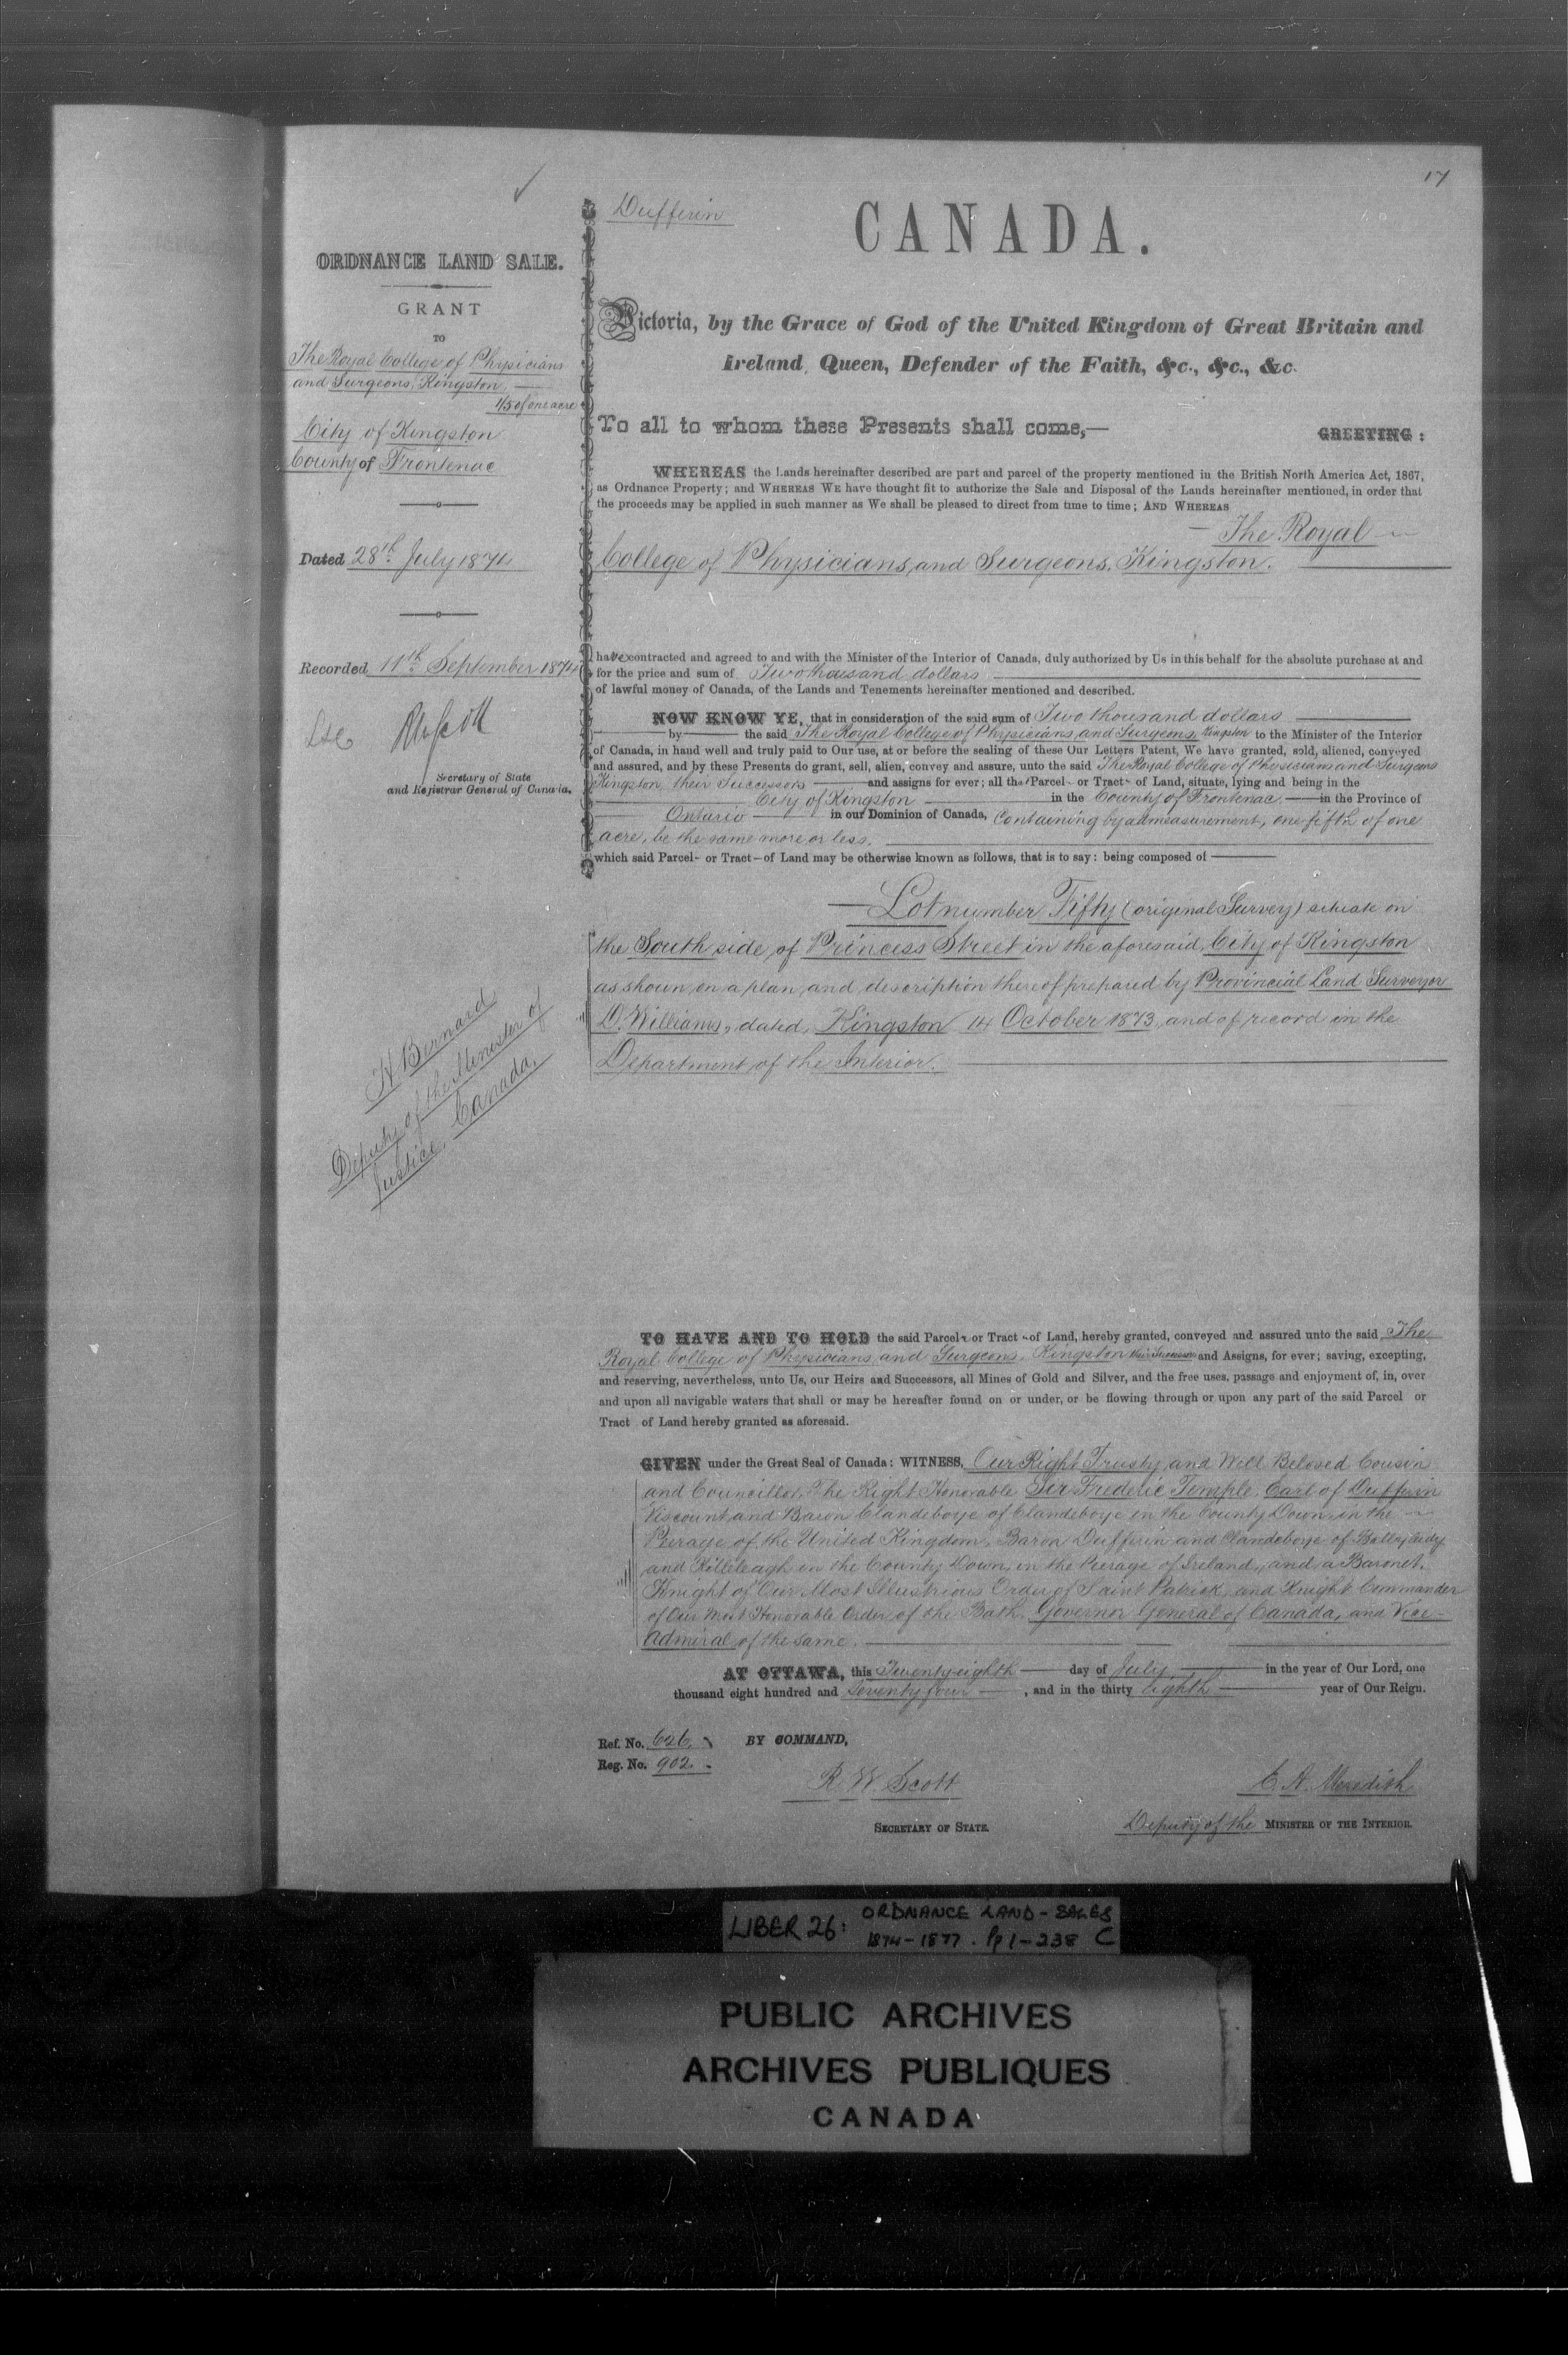 17
Dufferin
CANADA.
ORDNANCE LAND SALE.
GRANT
TO
The Royal College of Physicians
and Surgeons, Kingston.
1/5 of one acre
City of Kingston
County of Frontenac
Dated 28th July 1874
Recorded 11th September 1874
RWScott
Secretary of State
and Registrar General of Canada.
H Bernard
Deputy of the Minister of
Justice, Canada.
Victoria, by the Grace of God of the United Kingdom of Great Britain and
Ireland, Queen, Defender of the Faith, &c., &c., &c.
To all to whom these Presents shall come,—
GREETING:
WHEREAS the Lands hereinafter described are part and parcel of the property mentioned in the British North America Act, 1867,
as Ordnance Property; and WHEREAS WE have thought fit to authorize the Sale and Disposal of the Lands hereinafter mentioned, in order that
the proceeds may be applied in such manner as We shall be pleased to direct from time to time; AND WHEREAS
The Royal
College of Physicians and Surgeons, Kingston.
have contracted and agreed to and with the Minister of the Interior of Canada, duly authorized by Us in this behalf for the absolute purchase at and
for the price and sum of Two thousand dollars
of lawful money of Canada, of the Lands and Tenements hereinafter mentioned and described.
NOW KNOW YE, that in consideration of the said sum of Two thousand dollars
by the said The Royal College of Physicians and Surgeons, Kingston to the Minister of the Interior
of Canada, in hand well and truly paid to Our use, at or before the sealing of these Our Letters Patent, We have granted, sold, aliened, conveyed
and assured, and by these Presents do grant, sell, alien, convey and assure, unto the said The Royal College of Physicians and Surgeons
Kingston, their Successors and assigns for ever; all the Parcel or Tract of Land, situate, lying and being in the
City of Kingston in the County of Frontenac in the Province of
Ontario in our Dominion of Canada, containing by admeasurement, one fifth of one
acre, be the same more or less.
which said Parcel or Tract of Land may be otherwise known as follows, that is to say: being composed of
Lot number Fifty (original Survey) situate on
the South side of Princess Street in the aforesaid City of Kingston
as shown on a plan and description thereof prepared by Provincial Land Surveyor
O. Williams, dated, Kingston 14 October 1873, and of record in the
Department of the Interior.
TO HAVE AND TO HOLD the said Parcel or Tract of Land, hereby granted, conveyed and assured unto the said The
Royal College of Physicians and Surgeons, Kingston their Successors and Assigns, for ever; saving, excepting,
and reserving, nevertheless, unto Us, our Heirs and Successors, all Mines of Gold and Silver, and the free uses, passage and enjoyment of, in, over
and upon all navigable waters that shall or may be hereafter found on or under, or be flowing through or upon any part of the said Parcel or
Tract of Land hereby granted as aforesaid.
GIVEN under the Great Seal of Canada: WITNESS, Our Right Trusty and Well Beloved Cousin
and Councillor, The Right Honorable Sir Frederic Temple, Earl of Dufferin
Viscount and Baron Clandeboye of Clandeboye in the County Down in the
Peerage of the United Kingdom, Baron Dufferin and Clandeboye of Ballyleidy
and Killeleagh in the County Down, in the Peerage of Ireland, and a Baronet,
Knight of Our Most Illustrious Order of Saint Patrick, and Knight Commander
of Our Most Honorable Order of the Bath, Governor General of Canada, and Vice-
Admiral of the same.
AT OTTAWA, this Twenty eighth day of July in the year of Our Lord, one
thousand eight hundred and Seventy four, and in the thirty Eighth year of Our Reign.
Ref. No. 626.
Reg. No. 902.
BY COMMAND,
R. W. Scott
SECRETARY OF STATE.
E. A. Meredith
Deputy of the MINISTER OF THE INTERIOR.
LIBER 26: ORDNANCE LAND-SALES
1874-1877. Pp 1-238 C
PUBLIC ARCHIVES
ARCHIVES PUBLIQUES
CANADA